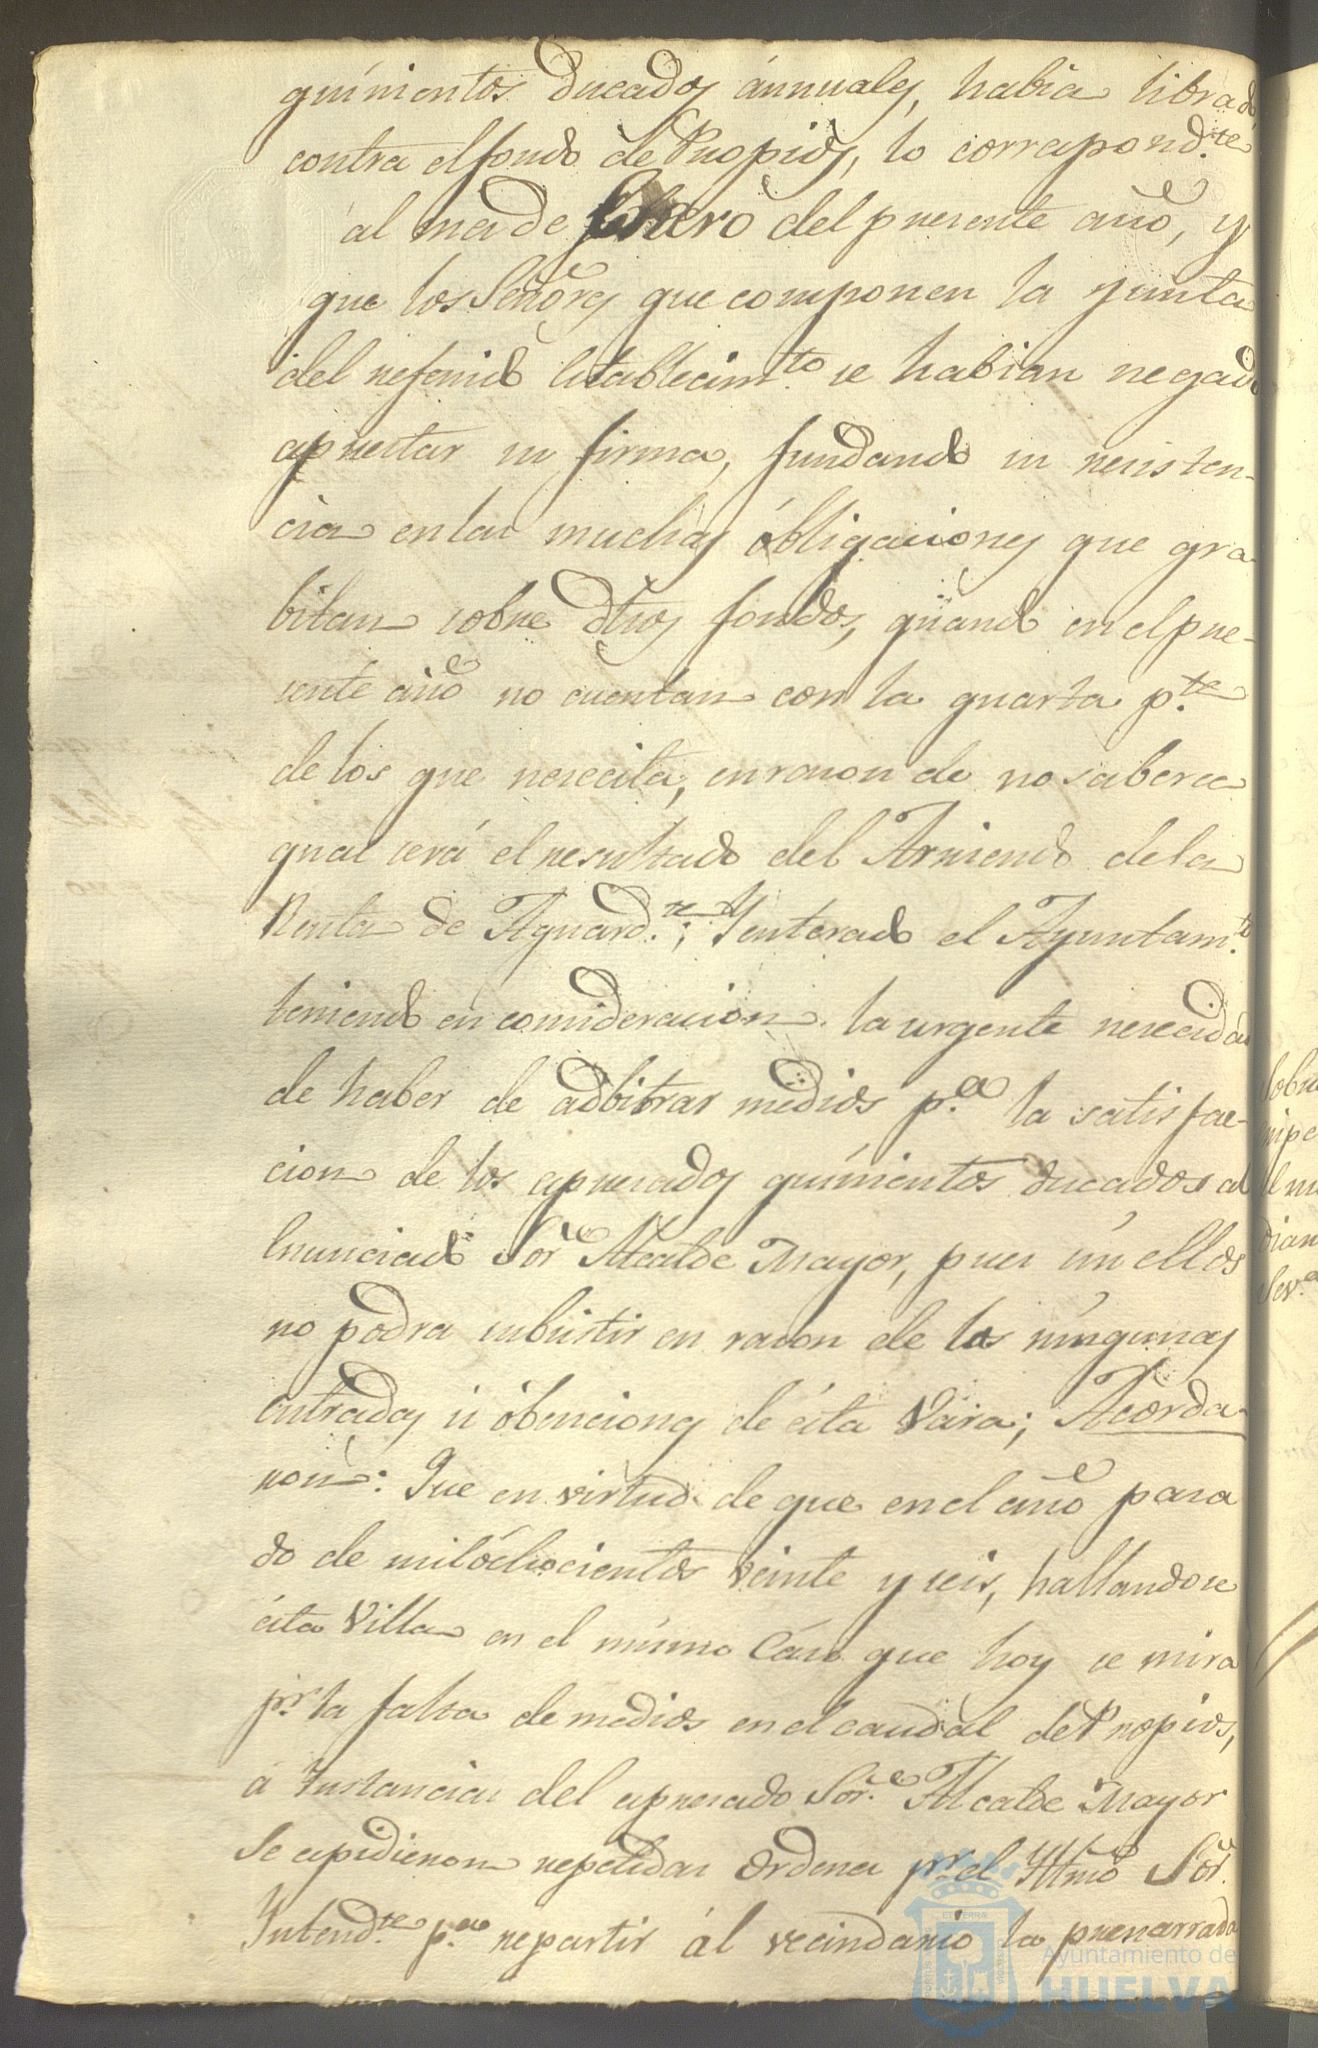 quinientos Ducados ánnuales, habia librado,
contra el fondo de Propios, lo correspond.te
al mes de febrero del presente año, y
que los Señores que componen la Junta
del referido Establecim.to se habian negado
aprestar su firma, fundando su resisten-
cia en las muchas óbligaciones que gra-
bitan sobre dhos fondos, quando en el pre-
sente año no cuentan con la quarta p.te
de los que necesita, en razon de no saberse
qual será el resultado del Arriendo de la
Renta de Aguard.te; Y enterado el Ayuntam.to
teniendo en consideracion la urgente necesidad
de haber de adbitrar medios p.a la satisfac-
cion de los apresados quinientos ducados al
Enunciado Sor. Alcalde Mayor, pues sin ellos
no podra subsistir en razon de las ningunas
entradas ú óbenciones de ésta Vara; Acorda-
ron: Que en virtud de que en el año pasa
do de mil óchocientos veinte y seis, hallandose
ésta Villa en el mismo Caso que hoy se mira
pr. la falta de medios en el caudal de Propios,
á Instancias del apresado Sor. Alcalde Mayor
Se expidieron repetidas ordenes pr. el Yltmo Sor.
Intend.te p.a repartir ál vecindario la prenarrada
sobre
Sev.a
Ayuntamiento de
HUELVA